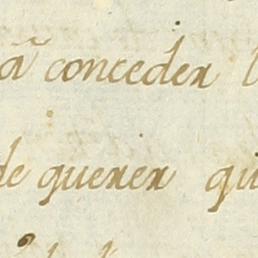 ã conceder
de querer qu